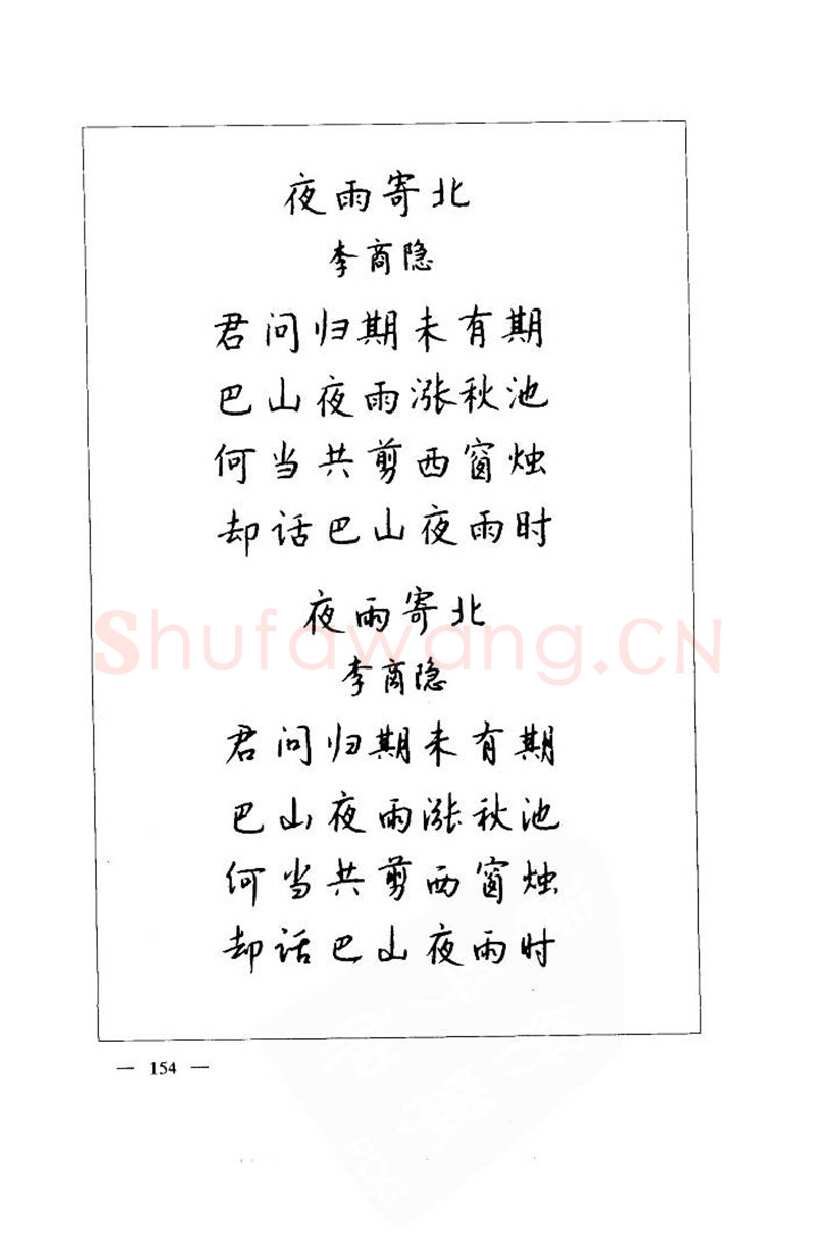 夜雨寄北
李商隐
君问归期未有期
巴山夜雨涨秋池
何当共剪西窗烛
却话巴山夜雨时
夜雨寄北
Shufawang.CN
李商隐
君问归期未有期
巴山夜雨涨秋池
何当共剪西窗烛
却话巴山夜雨时
— 154 —